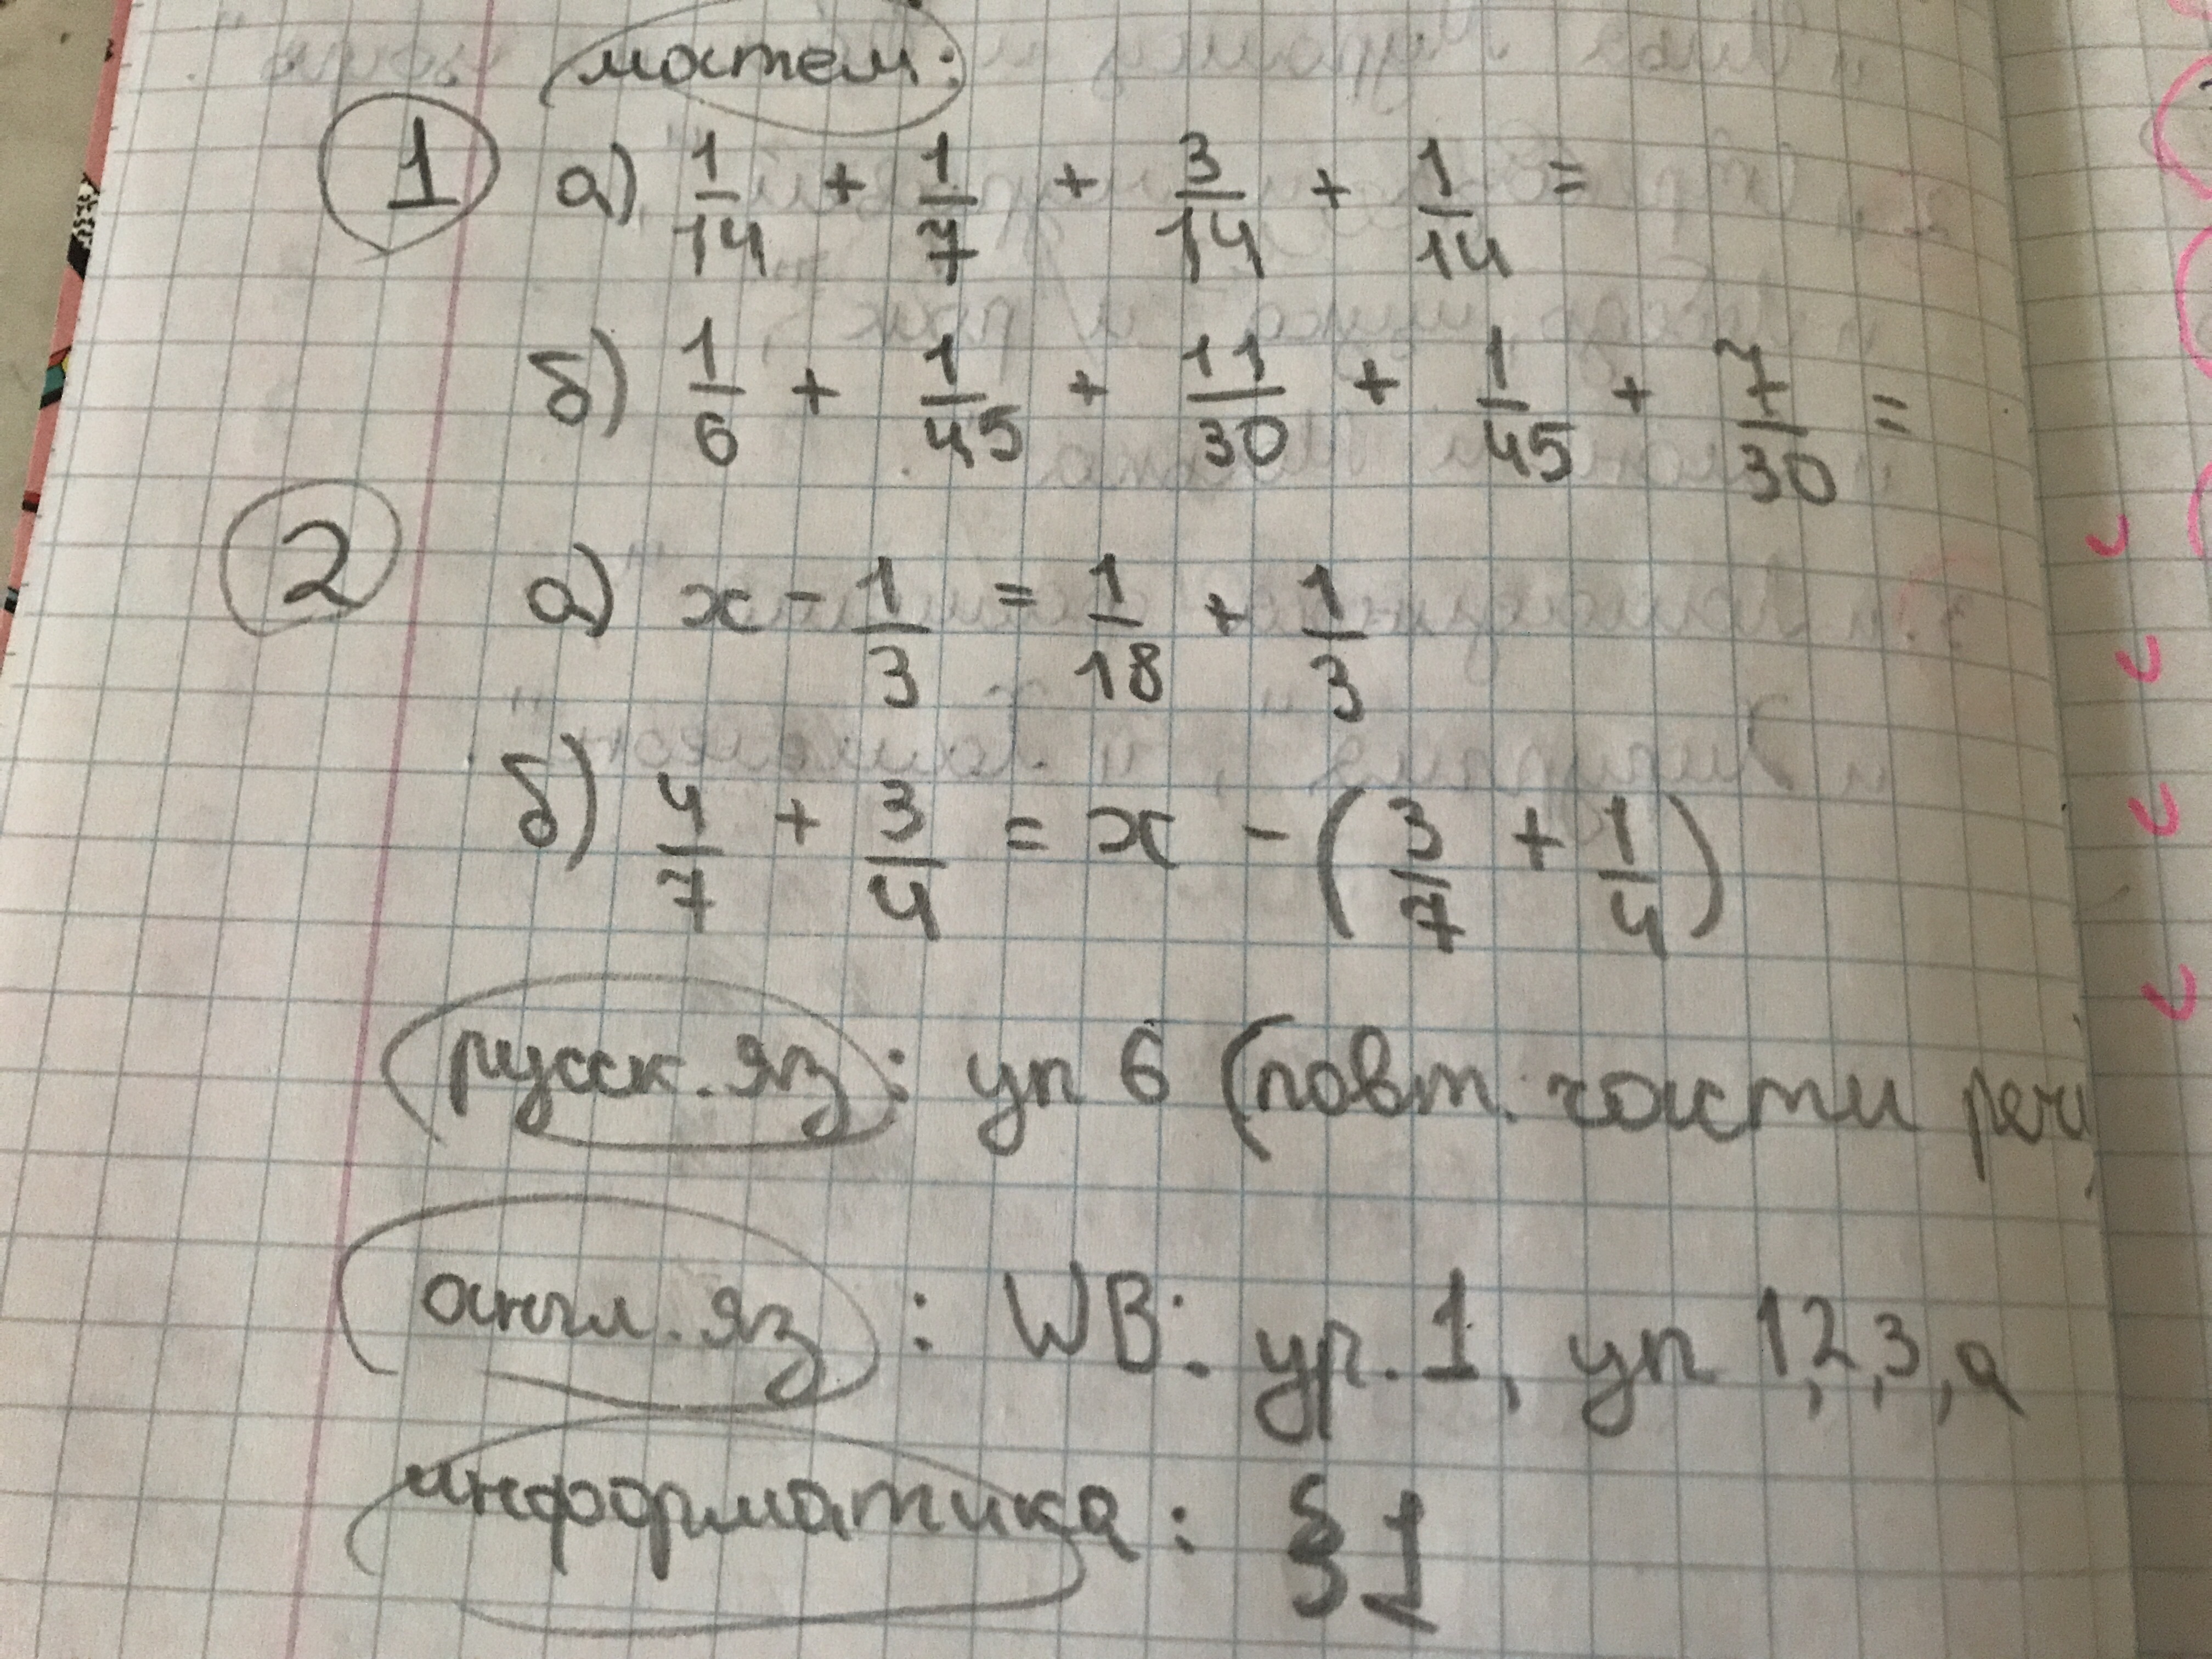 матем:
1 а) 1/14 + 1/7 + 3/14 + 1/14 =
б) 1/6 + 1/45 + 11/30 + 1/45 + 7/30 =
2 а) x - 1/3 = 1/18 + 1/3
б) 4/7 + 3/4 = x - (3/7 + 1/4)
русск. яз: уп 6 (повт. части речи)
англ. яз: WB: ур. 1, уп 1,2,3,а
информатика: §1